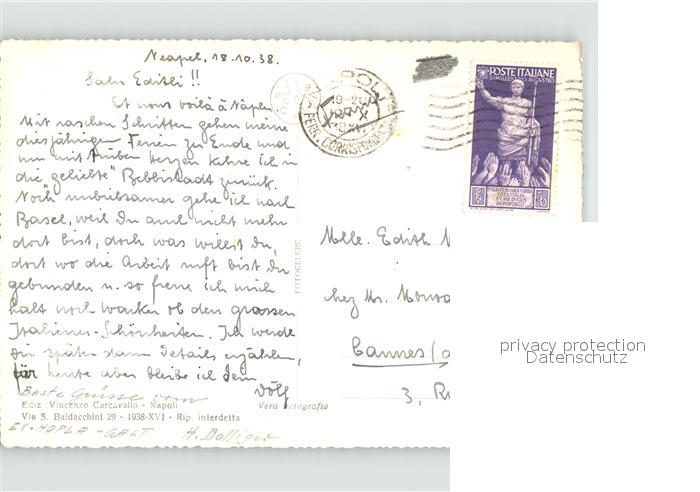 Neapel, 18.10.38.
Salu Edithli!!
Et vous voilà à Naples
Mit raschen Schritten gehen meine
diesjährigen Ferien zu Ende und
nur mit trüben Herzen kehre ich in
die geliebte "Bebbistadt zurück.
Noch unliebsamer gehe ich nach
Basel, weil Du auch nicht mehr
dort bist, doch was willst Du,
dort wo die Arbeit ruft bist Du
gebunden u. so freue ich mich
halt noch wacker ob den grossen
Italiener-Schönheiten. Ich werde
Dir später dann Details erzählen,
für heute aber bleibe ich Dein
Dölf
Beste Grüsse vom
Ediz. Vincenzo Carcavallo - Napoli
Via S. Baldacchini 29 - 1938-XVI - Rip. interdetta
EX-HOPLA-GAST H. Bolliger
Vera Fotografia
FOTOCELERE
NAPOLI
CORRISPONDENZE
POSTE ITALIANE
Mlle. Edith
chez Mr.
Cannes
3, R
privacy protection
Datenschutz